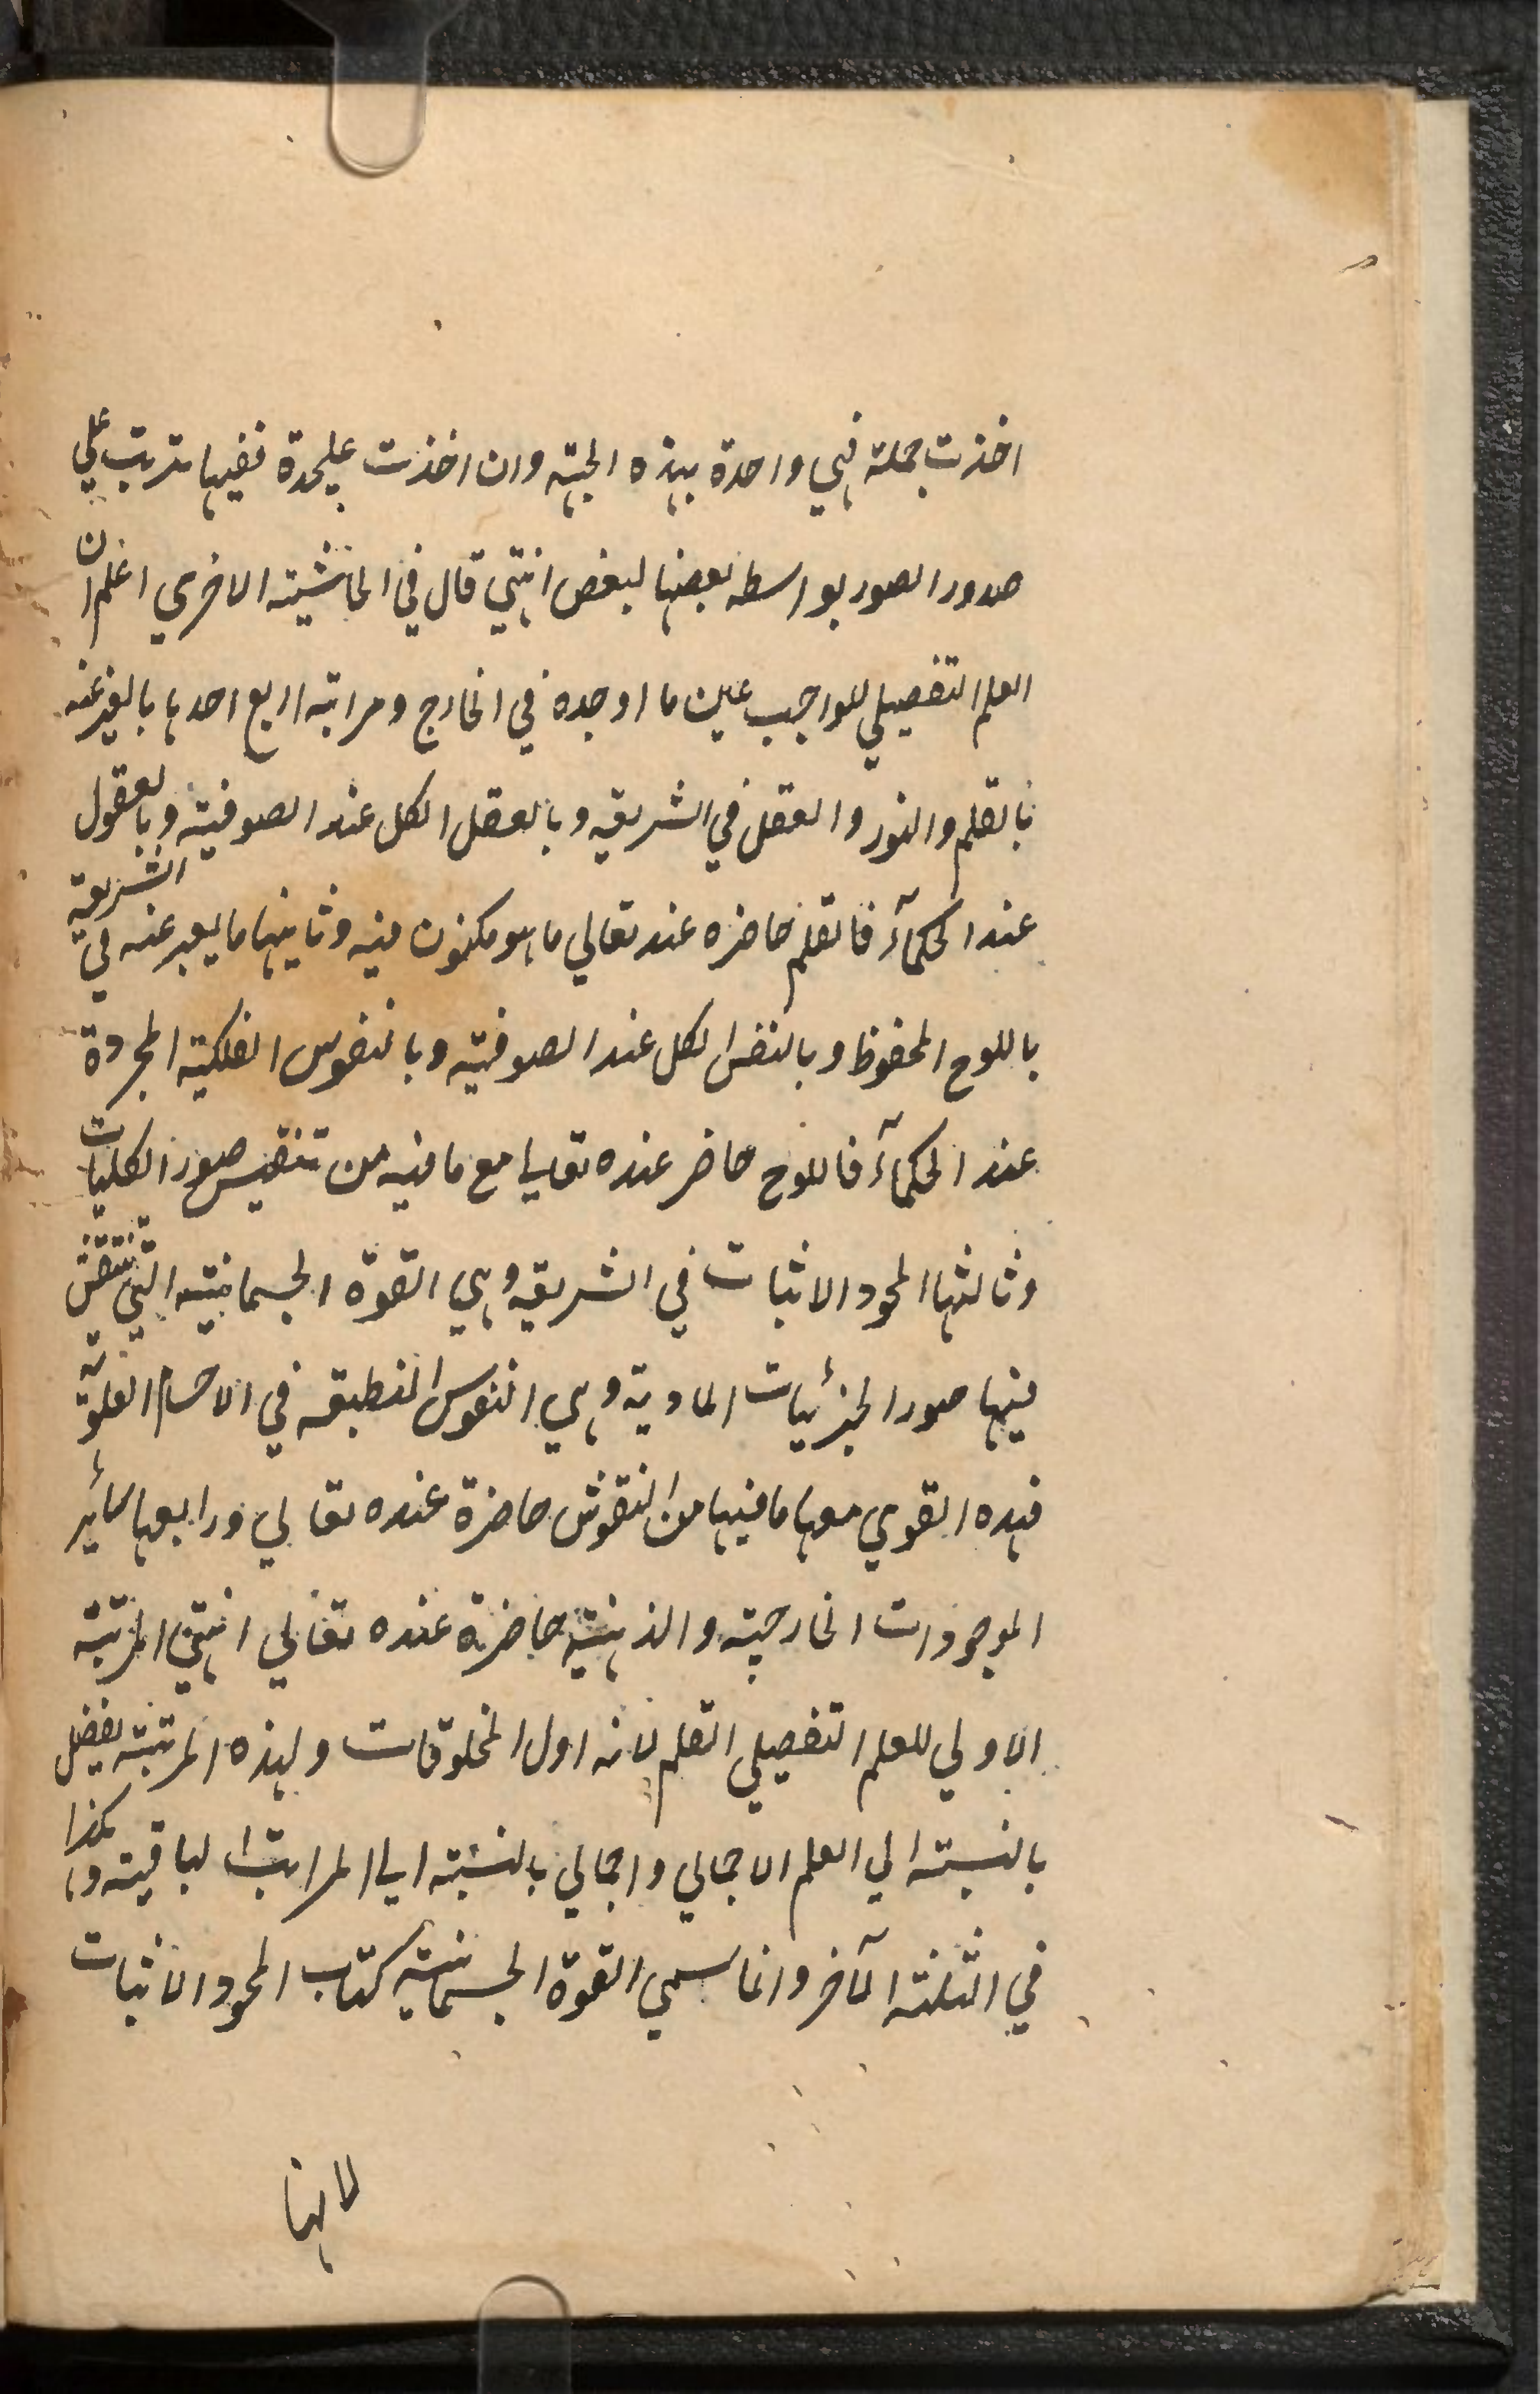 اخذت جملة فهي واحدة بهذه الجهة وان اخذت عليحدة ففيها ترتب علي
صدور الصور بواسطه بعضها لبعض انتهي قال في الحاشية الاخري اعلم ان
العلم التفصيلي للواجب عين ما اوجده في الخارج ومراتبه اربع احدها
بالقلم والنور والعقل في الشريعه وبالعقل الكل عند الصوفية وبالعقول
عند الحكمآء فالقلم حاضره عند تعالي ما هو مكنون فيه وثانيها ما يعبر عنه في الشريعة
باللوح المحفوظ وبالنفس الكل عند الصوفية وبالنفوس الفلكية المجردة
عند الحكمآء فاللوح حاضر عنده تعالي مع ما فيه من صور الكليات
وثالثها المحو والاثبات في الشريعه وهي القوة الجسمانية التي تنتقش
فيها صور الجزئيات المادية وهي النفوس المنطبقه في الاجسام العلوية
فهده القوي معها ما فيها من النقوش حاضرة عنده تعالي ورابعها سائر
الموجودات الخارجية والذهنية حاضرة عنده تعالي انتهي المرتبة
الاولي للعلم التفصيلي القلم لانه اول المخلوقات ولهذه المرتبة تفصيل
بالنسبة الي العلم الاجمالي واجمالي بالنسبة الي المراتب الباقية وهكذا
في الثلثة الآخر وانما سمي القوة الجسمانية كتاب المحو والاثبات
لانها